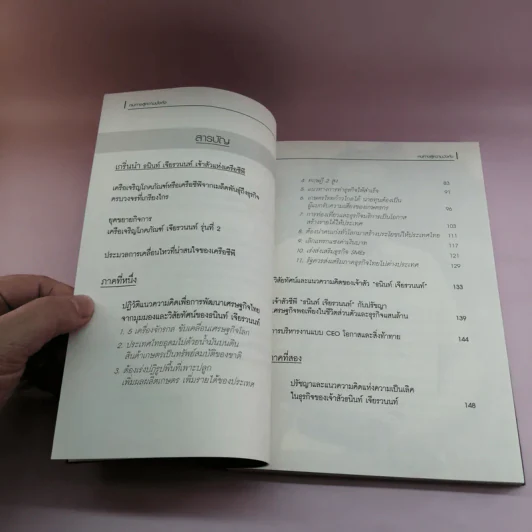 สารบัญ
เกริ่นนำ ธนินท์ เจียรวนนท์ เจ้าสัวแห่งเครือซีพี
เครือเจริญโภคภัณฑ์หรือเครือซีพีจากเมล็ดพันธุ์ถึงธุรกิจ
ครบวงจรที่เกรียงไกร
ยุคขยายกิจการ
เครือเจริญโภคภัณฑ์ เจียรวนนท์ รุ่นที่ 2
ประมวลการเคลื่อนไหวที่น่าสนใจของเครือซีพี
ภาคที่หนึ่ง
ปฏิวัติแนวความคิดเพื่อการพัฒนาเศรษฐกิจไทย
จากมุมมองและวิสัยทัศน์ของธนินท์ เจียรวนนท์
1. 5 เครื่องจักรกล ขับเคลื่อนเศรษฐกิจโลก
2. ประเทศไทยอุดมไปด้วยน้ำมันบนดิน
สินค้าเกษตรเป็นทรัพย์สมบัติของชาติ
3. ต้องเร่งปฏิรูปพื้นที่เพาะปลูก
เพิ่มผลผลิตเกษตร เพิ่มรายได้ของประเทศ
4. ทฤษฎี 2 สูง 83
5. แนวทางการทำธุรกิจให้สำเร็จ 91
96
103
สร้างรายได้ให้ประเทศ
111
9. เล็กแทรกแซงค่าเงินบาท 117
10. เร่งส่งเสริมธุรกิจ SMEs 121
11. รัฐควรส่งเสริมภาคธุรกิจไทยไปต่างประเทศ 129
วิสัยทัศน์และแนวความคิดของเจ้าสัว "ธนินท์ เจียรวนนท์" 133
เจ้าสัวซีพี "ธนินท์ เจียรวนนท์" กับปรัชญา
เศรษฐกิจพอเพียงในชีวิตส่วนตัวและธุรกิจแสนล้าน 139
การบริหารงานแบบ CEO โอกาสและสิ่งท้าทาย 144
ภาคที่สอง
ปรัชญาและแนวความคิดแห่งความเป็นเลิศ
ในธุรกิจของเจ้าสัวธนินท์ เจียรวนนท์ 148